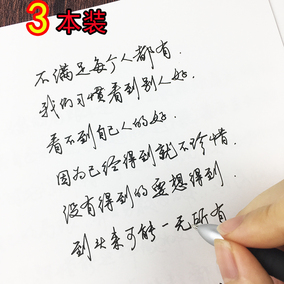 3本装
不满足每个人都有.
我们习惯看到别人好.
看不到自己人的好.
因为已经得到就不珍惜.
没有得到的要想得到.
到头来可能一无所有